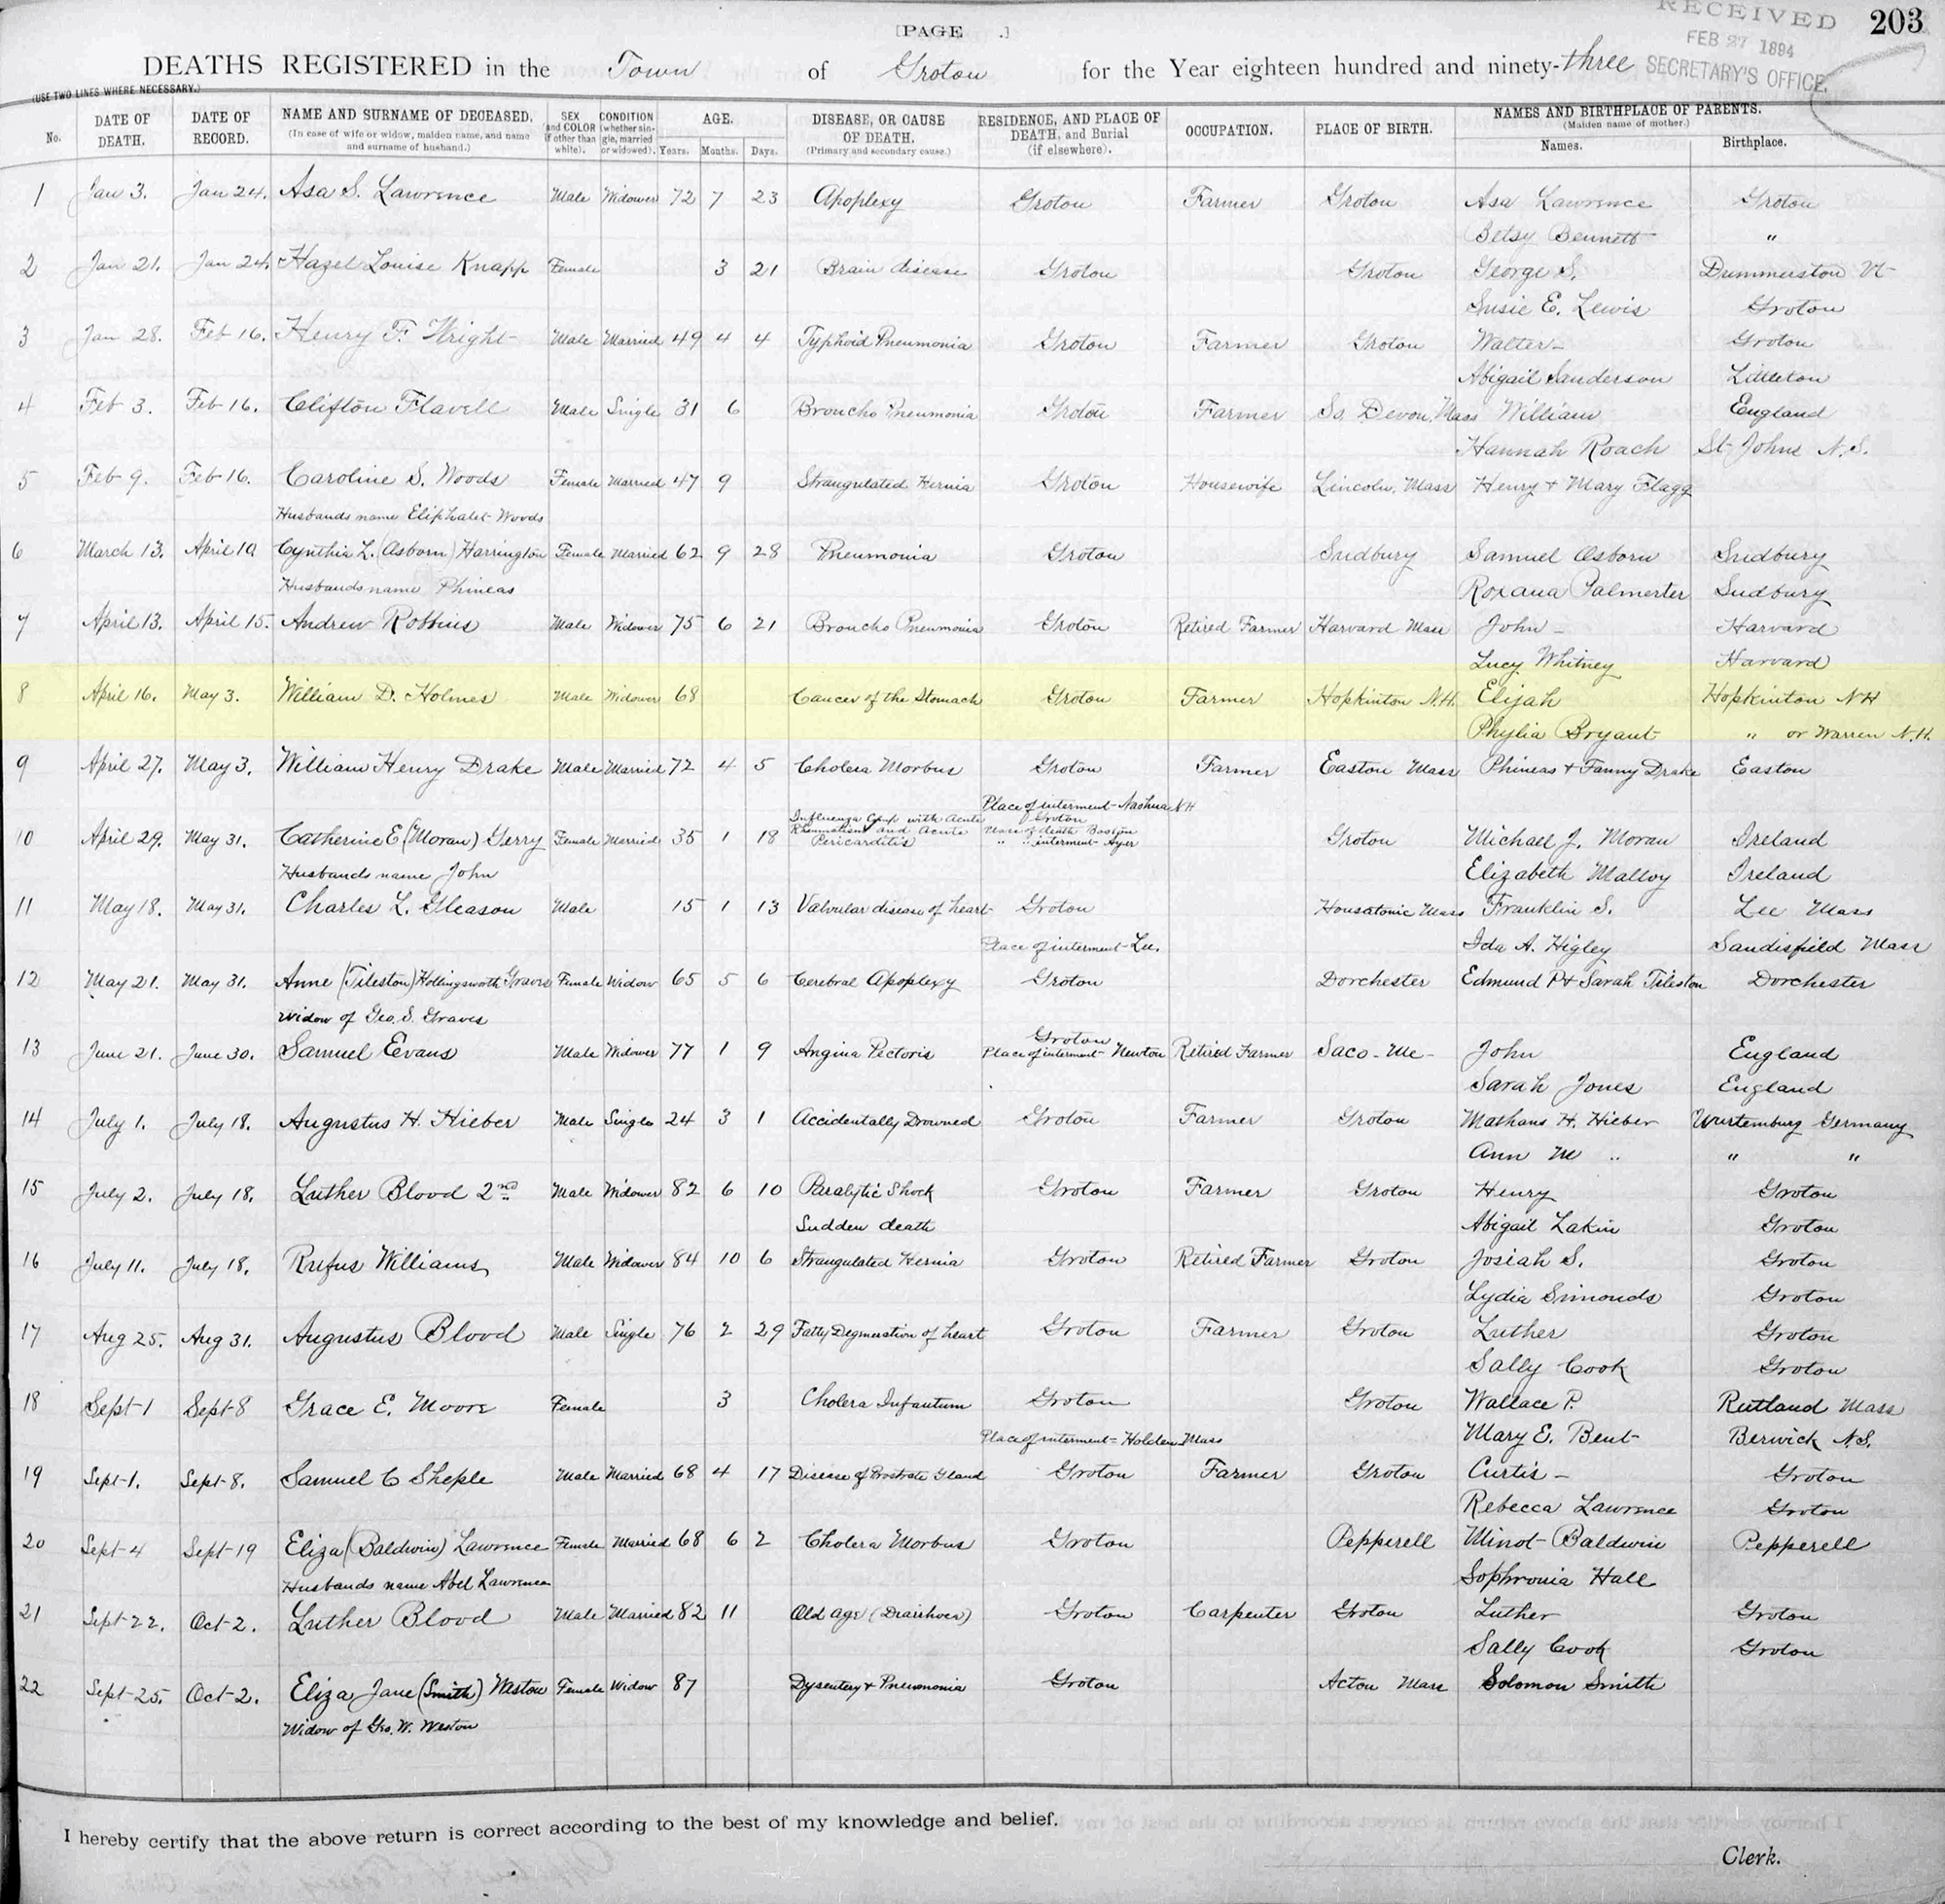 [PAGE .]
RECEIVED
FEB 27 1894
SECRETARY'S OFFICE.
203
DEATHS REGISTERED in the Town of Groton for the Year eighteen hundred and ninety-three
(USE TWO LINES WHERE NECESSARY.)
No. DATE OF DEATH. DATE OF RECORD. NAME AND SURNAME OF DECEASED. (In case of wife or widow, maiden name, and name and surname of husband.) SEX and COLOR if other than white). CONDITION (whether single, married or widowed). AGE. Years. Months. Days. DISEASE, OR CAUSE OF DEATH. (Primary and secondary cause.) RESIDENCE, AND PLACE OF DEATH, and Burial (if elsewhere). OCCUPATION. PLACE OF BIRTH. NAMES AND BIRTHPLACE OF PARENTS. (Maiden name of mother.) Names. Birthplace.
1 Jan 3. Jan 24. Asa S. Lawrence Male Widower 72 7 23 Apoplexy Groton Farmer Groton Asa Lawrence Groton
Betsy Bennett "
2 Jan 21. Jan 24. Hazel Louise Knapp Female 3 21 Brain disease Groton Groton George S. Dummerston Vt
Susie E. Lewis Groton
3 Jan 28. Feb 16. Henry F. Wright Male Married 49 4 4 Typhoid Pneumonia Groton Farmer Groton Walter - Groton
Abigail Sanderson Littleton
4 Feb 3. Feb 16. Clifton Flavell Male Single 31 6 Broncho Pneumonia Groton Farmer So. Devon, Mass William England
Hannah Roach St Johns N.S.
5 Feb 9. Feb 16. Caroline S. Woods Female Married 47 9 Strangulated Hernia Groton Housewife Lincoln, Mass Henry + Mary Flagg
Husbands name Eliphalet Woods
6 March 13. April 10 Cynthia L. (Osborn) Harrington Female Married 62 9 28 Pneumonia Groton Sudbury Samuel Osborn Sudbury
Husbands name Phineas Roxana Palmerter Sudbury
7 April 13. April 15. Andrew Robbins Male Widower 75 6 21 Broncho Pneumonia Groton Retired Farmer Harvard Mass John - Harvard
Lucy Whitney Harvard
8 April 16. May 3. William D. Holmes Male Widower 68 Cancer of the Stomach Groton Farmer Hopkinton N.H. Elijah Hopkinton NH
Phylia Bryant " or Warren N.H.
9 April 27. May 3. William Henry Drake Male Married 72 4 5 Cholera Morbus Groton Farmer Easton Mass Phineas + Fanny Drake Easton
Place of interment - Nashua NH
10 April 29. May 31. Catherine E (Moran) Gerry Female Married 35 1 18 Influenza Comp with Acute Rheumatism and Acute Pericarditis Groton Place of death Boston " " interment Ayer Groton Michael J. Moran Ireland
Husbands name John Elizabeth Malloy Ireland
11 May 18. May 31. Charles L. Gleason Male 15 1 13 Valvular disease of heart Groton Housatonic Mass Franklin S. Lee Mass
Place of interment - Lee. Ida A. Higley Sandisfield Mass
12 May 21. May 31. Anne (Tileston) Hollingsworth Graves Female Widow 65 5 6 Cerebral Apoplexy Groton Dorchester Edmund P + Sarah Tileston Dorchester
Widow of Geo. S. Graves
13 June 21. June 30. Samuel Evans Male Widower 77 1 9 Angina Pectoris Groton Place of interment - Newton Retired Farmer Saco - Me - John England
Sarah Jones England
14 July 1. July 18. Augustus H. Hieber Male Single 24 3 1 Accidentally Drowned Groton Farmer Groton Mathans H. Hieber Wurtemburg Germany
Ann M " " "
15 July 2. July 18. Luther Blood 2nd Male Widower 82 6 10 Paralytic Shock Groton Farmer Groton Henry Groton
Sudden death Abigail Lakin Groton
16 July 11. July 18. Rufus Williams Male Widower 84 10 6 Strangulated Hernia Groton Retired Farmer Groton Josiah S. Groton
Lydia Simonds Groton
17 Aug 25. Aug 31. Augustus Blood Male Single 76 2 29 Fatty Degeneration of heart Groton Farmer Groton Luther Groton
Sally Cook Groton
18 Sept 1 Sept 8 Grace E. Moore Female 3 Cholera Infantum Groton Groton Wallace P. Rutland Mass
Place of interment - Holden Mass Mary E. Bent Berwick N.S.
19 Sept 1. Sept 8. Samuel C Sheple Male Married 68 4 17 Disease of Prostrate Gland Groton Farmer Groton Curtis - Groton
Rebecca Lawrence Groton
20 Sept 4 Sept 19 Eliza (Baldwin) Lawrence Female Married 68 6 2 Cholera Morbus Groton Pepperell Minot Baldwin Pepperell
Husbands name Abel Lawrence Sophronia Hall
21 Sept 22. Oct 2. Luther Blood Male Married 82 11 Old age (Diairhoea) Groton Carpenter Groton Luther Groton
Sally Cook Groton
22 Sept 25. Oct 2. Eliza Jane (Smith) Weston Female Widow 87 Dysentery + Pneumonia Groton Acton Mass Solomon Smith
Widow of Geo. W. Weston
I hereby certify that the above return is correct according to the best of my knowledge and belief.
Clerk.